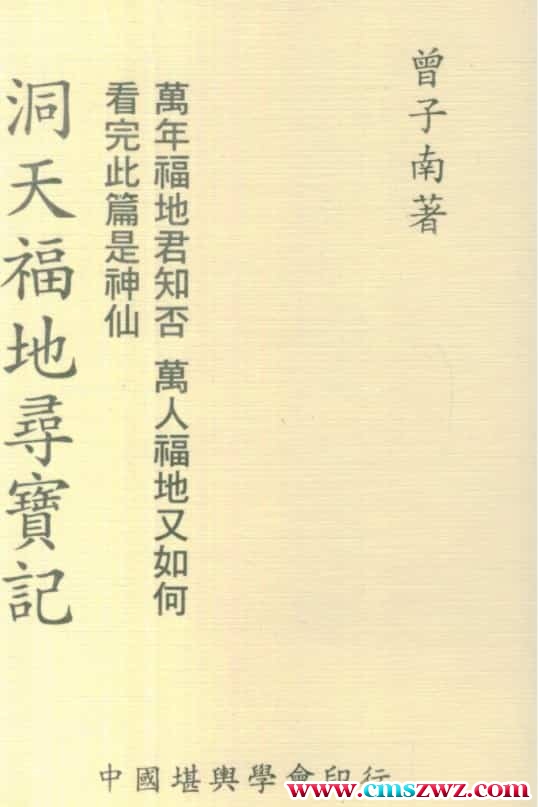 曾子南著
萬年福地君知否 萬人福地又如何
看完此篇是神仙
洞天福地尋寶記
中國堪輿學會印行
www.cmszwz.com